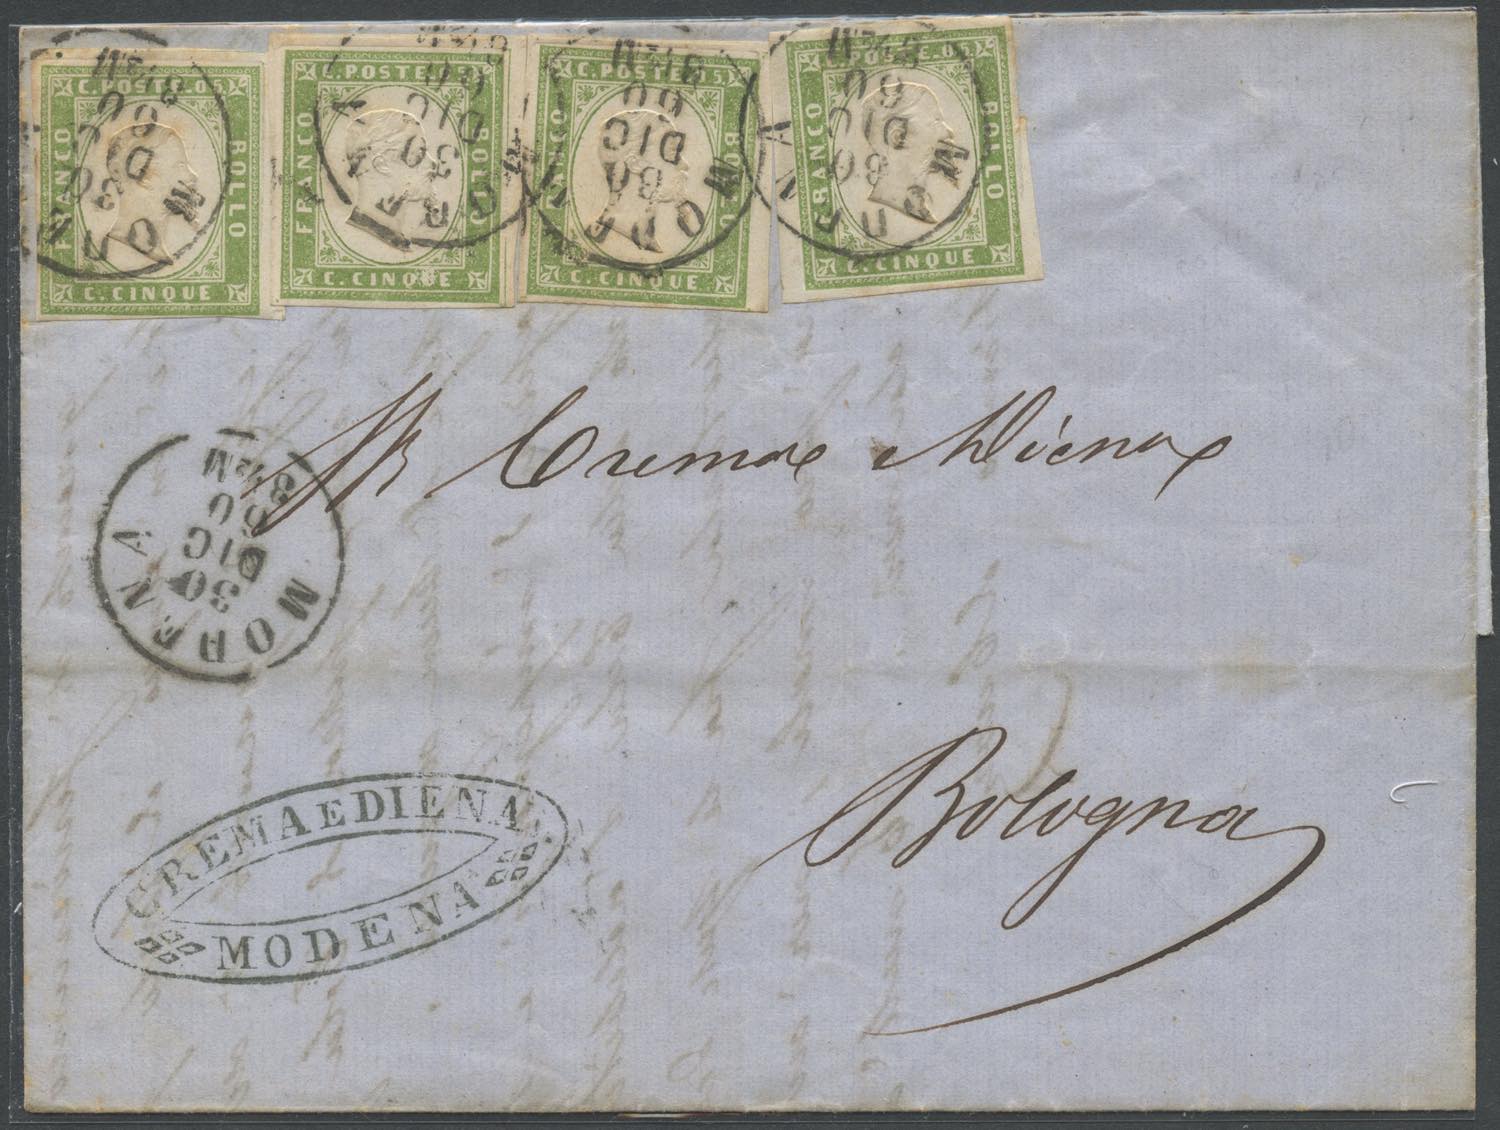 C. POSTE. 05
FRANCO
BOLLO
C. CINQUE
C. POSTE. 05
FRANCO
BOLLO
C. CINQUE
C. POSTE. 05
BOLLO
C. CINQUE
C. POSTE. 05
FRANCO
BOLLO
C. CINQUE
MODENA
30
DIC
60
8½M
MODENA
30
DIC
60
8½M
MODENA
30
DIC
60
8½M
MODENA
30
DIC
60
8½M
Crema e Diena
MODENA
30
DIC
60
8½M
Bologna
CREMA E DIENA
MODENA